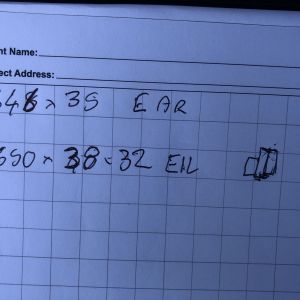 nt Name:
ect Address:
x 35 EAR
550 x 38 - 32 EIL